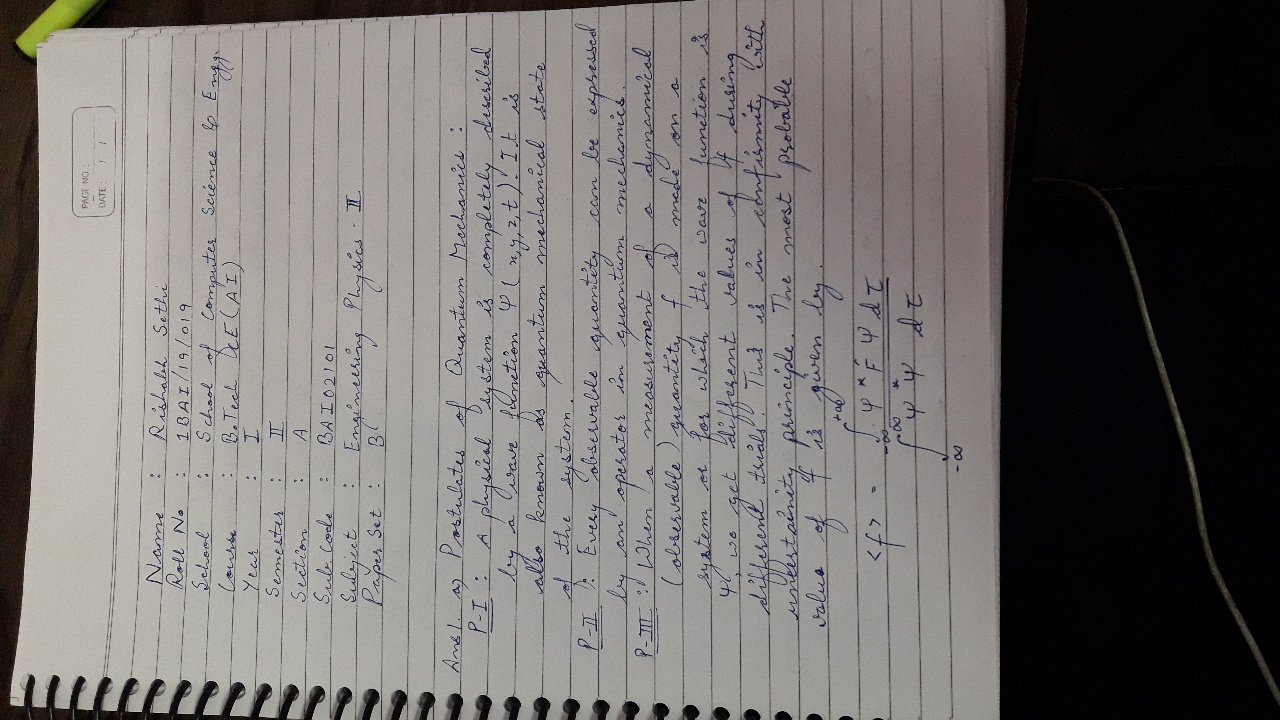 PAGE NO.:
DATE: / /
Name : Rishabh Sethi
Roll No : 1BAI/19/019
School : School of Computer Science & Engg.
Course : B.Tech CE(AI)
Year : I
Semester : II
Section : A
Sub. Code : BAI02101
Subject : Engineering Physics - II
Paper Set : B
Ans1. a) Postulates of Quantum Mechanics :
P-I : A physical system is completely described
by a wave function Ψ(x,y,z,t). It is
also known as quantum mechanical state
of the system.
P-II : Every observable quantity can be expressed
by an operator in quantum mechanics.
P-III : When a measurement of a dynamical
(observable) quantity f is made on a
system or for which the wave function is
Ψ, we get different values of f during
different trials. This is in confirmity with
uncertainity principle. The most probable
value of f is given by.
<f> = ∫_{-∞}^{+∞} Ψ* F̂ Ψ dτ
∫_{-∞}^{∞} Ψ* Ψ dτ